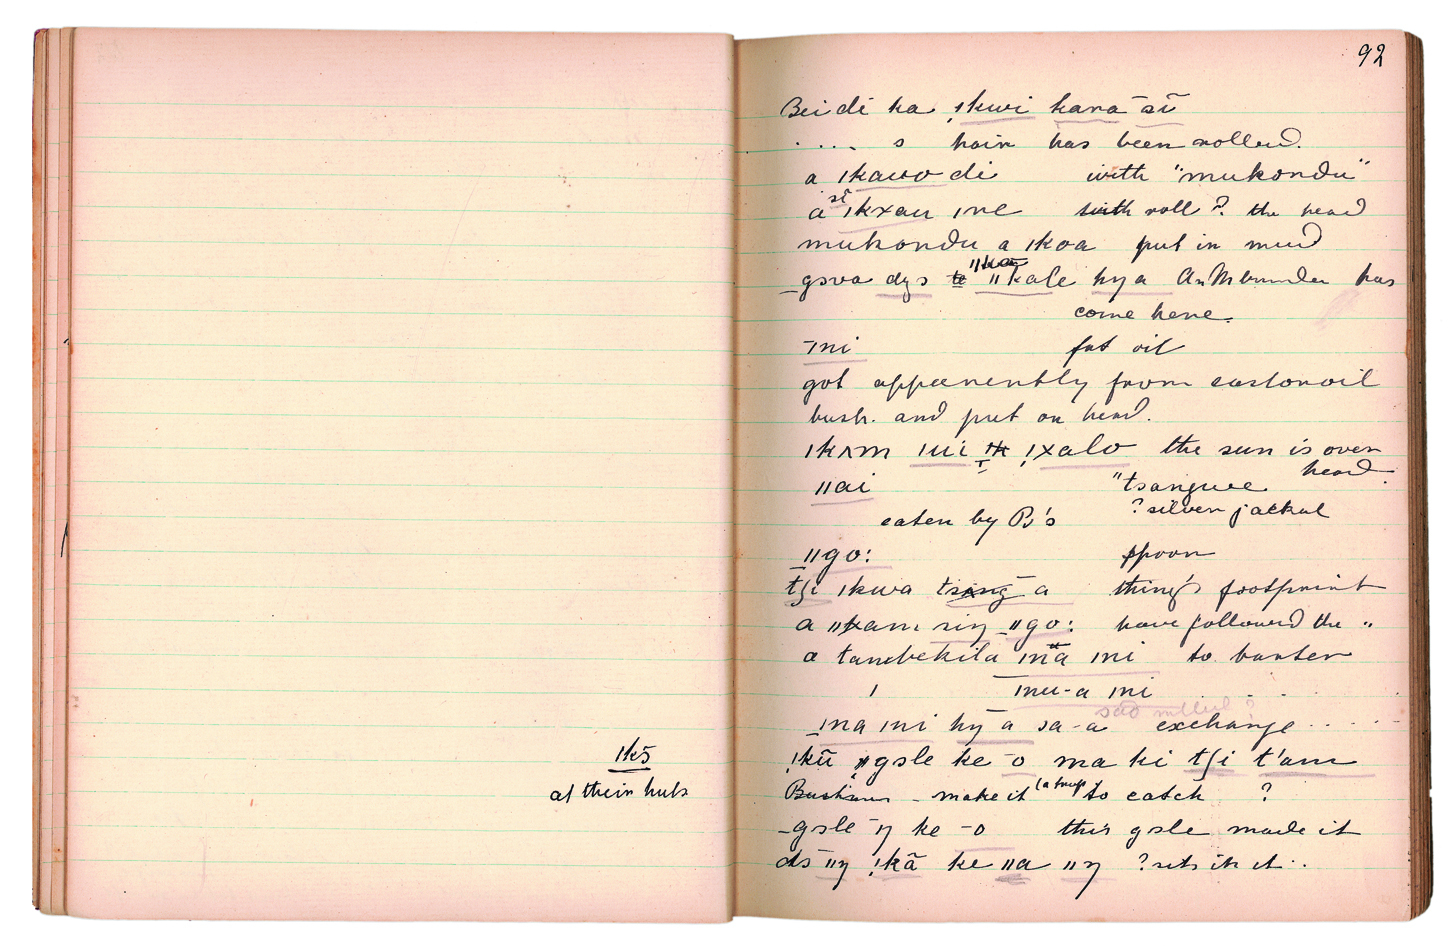 ǀkɔ̄
at their huts
92
Bei di ka ǃkwi kana sĩ
.... s hair has been rolled.
a ǀkawo di with "mukondu"
a sĩ ǀkxau ǀne roll? the head
mukondu a ǀkoa put in mud
gova ǁkale hya An Mbunda has
come here.
ǀni fat oil
got apparently from castor oil
bush. and put on head.
ǀkʌm ǀui ǃxalo the sun is over
head.
ǁai "tsangwe
? silver jackal
eaten by B's
ǁgo: spoon
tʃi ǀkwa a thing's footprint
a ǁxam siŋ ǁgo: have followed the "
a tambekila ǀna ǀni to barter
ǀ ǀnu-a ǀni
ǀna ǀni hy a sa-a exchange ....
ǃkũ gɔle ke -o ma ki tʃi t'am
Bushman - make it (a trap) to catch ?
-gɔle ŋ ke -o this gɔle made it
dɔ ǁŋ ǃkã ke ǁa ǁŋ ? sets it it..